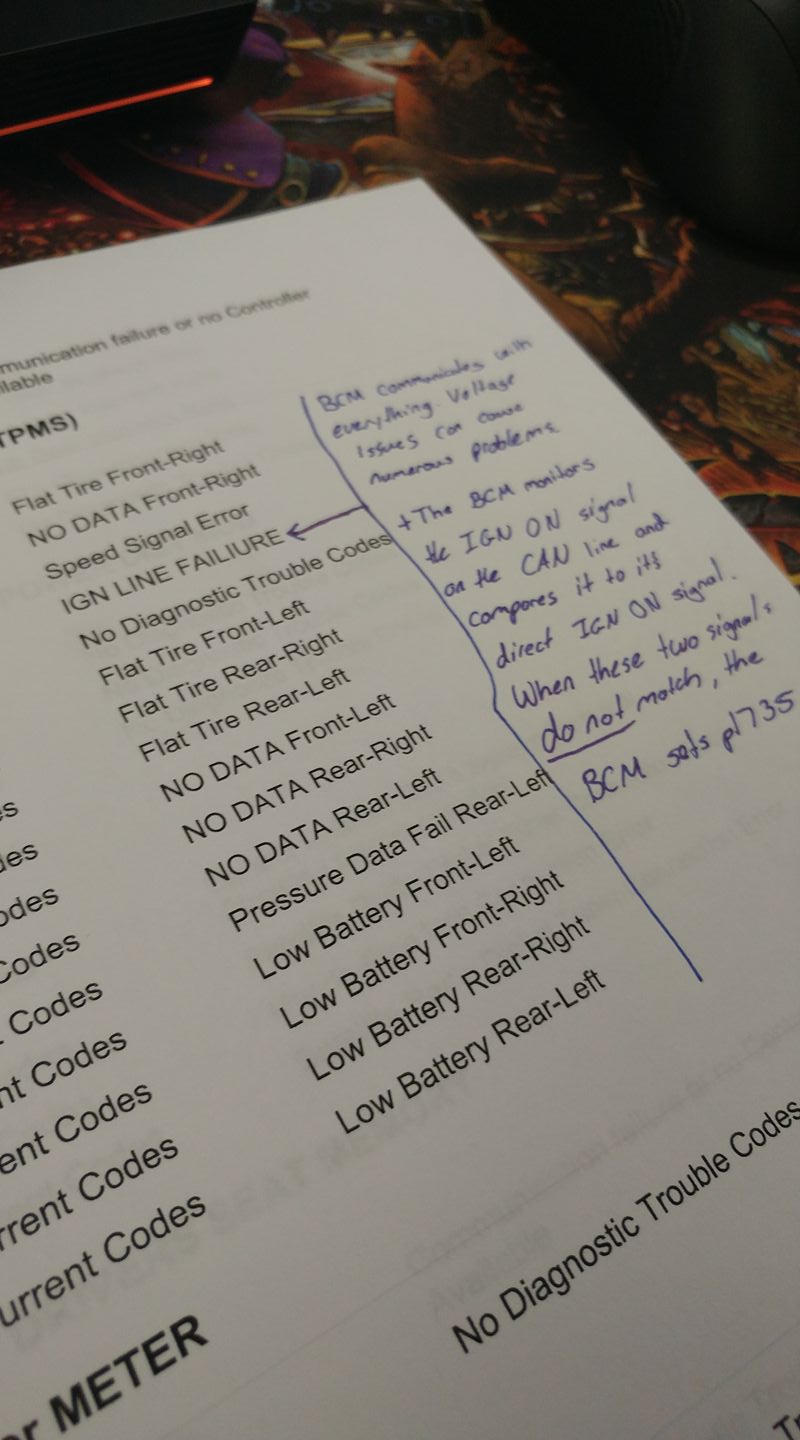 munication failure or no Controller
ilable
TPMS)
Flat Tire Front-Right
NO DATA Front-Right
Speed Signal Error
IGN LINE FAILIURE
No Diagnostic Trouble Codes
Flat Tire Front-Left
Flat Tire Rear-Right
Flat Tire Rear-Left
NO DATA Front-Left
NO DATA Rear-Right
NO DATA Rear-Left
Pressure Data Fail Rear-Left
Low Battery Front-Left
Low Battery Front-Right
Low Battery Rear-Right
Low Battery Rear-Left
BCM communicates with
everything. Voltage
Issues can cause
numerous problems.
+The BCM monitors
the IGN ON signal
on the CAN line and
compares it to its
direct IGN ON signal.
When these two signals
do not match, the
BCM sets p1735
es
des
odes
Codes
t Codes
nt Codes
ent Codes
rrent Codes
urrent Codes
or METER
No Diagnostic Trouble Codes
Tr